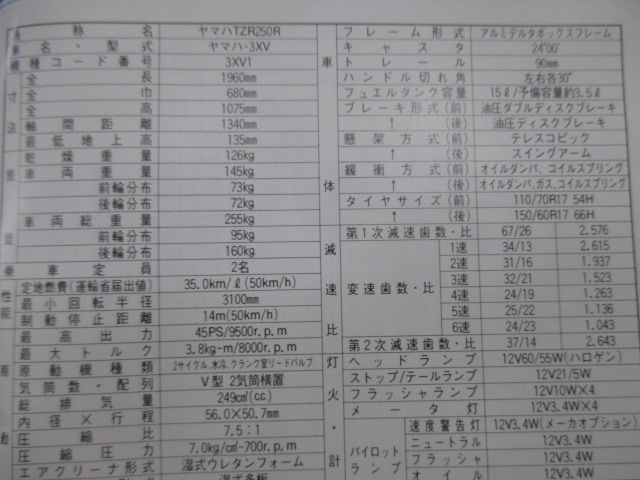 通称名 ヤマハTZR250R
車名・型式 ヤマハ・3XV
機種コード番号 3XV1
寸法
全長 1960mm
全巾 680mm
全高 1075mm
軸間距離 1340mm
最低地上高 135mm
重量
乾燥重量 126kg
車両重量 145kg
前輪分布 73kg
後輪分布 72kg
車両総重量 255kg
前輪分布 95kg
後輪分布 160kg
乗車定員 2名
性能
定地燃費(運輸省届出値) 35.0km/ℓ(50km/h)
最小回転半径 3100mm
制動停止距離 14m(50km/h)
最高出力 45PS/9500r.p.m
最大トルク 3.8kg-m/8000r.p.m
原動
原動機種類 2サイクル,水冷,クランク室リードバルブ
気筒数・配列 V型 2気筒横置
総排気量 249㎤(cc)
内径×行程 56.0×50.7mm
圧縮比 7.5:1
圧縮圧力 7.0kg/c㎡-700r.p.m
エアクリーナ形式 湿式ウレタンフォーム
湿式多板
車体
フレーム形式 アルミデルタボックスフレーム
キャスタ 24°00′
トレール 90mm
ハンドル切れ角 左右各30°
フュエルタンク容量 15ℓ/予備容量約3.5ℓ
ブレーキ形式(前) 油圧ダブルディスクブレーキ
↑(後) 油圧ディスクブレーキ
懸架方式(前) テレスコピック
↑(後) スイングアーム
緩衝方式(前) オイルダンパ、コイルスプリング
↑(後) オイルダンパ,ガス,コイルスプリング
タイヤサイズ(前) 110/70R17 54H
↑(後) 150/60R17 66H
減速比
第1次減速歯数・比 67/26 2.576
変速歯数・比
1速 34/13 2.615
2速 31/16 1.937
3速 32/21 1.523
4速 24/19 1.263
5速 25/22 1.136
6速 24/23 1.043
第2次減速歯数・比 37/14 2.643
灯火・計
ヘッドランプ 12V60/55W(ハロゲン)
ストップ/テールランプ 12V21/5W
フラッシャランプ 12V10W×4
メータ灯 12V3.4W×4
パイロットランプ
速度警告灯 12V3.4W(メーカオプション)
ニュートラル 12V3.4W
フラッシャ 12V3.4W
オイル 12V3.4W